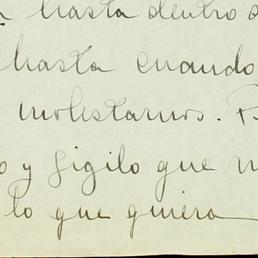 hasta dentro
hasta cuando
molestarnos.
o y sigilo que
lo que quiera